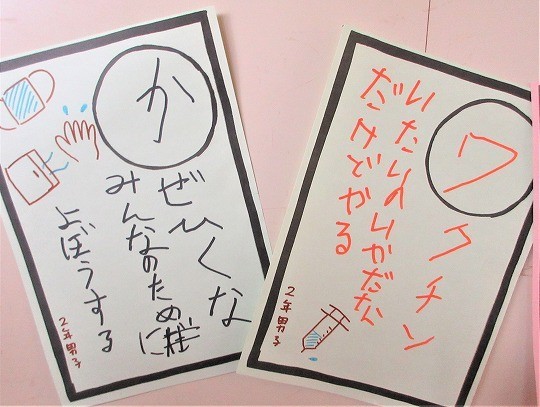 か
ぜひくな
みんなのために
よぼうする
2年男子
ワ
クチン
いたいのいやだな
だけどやる
2年男子